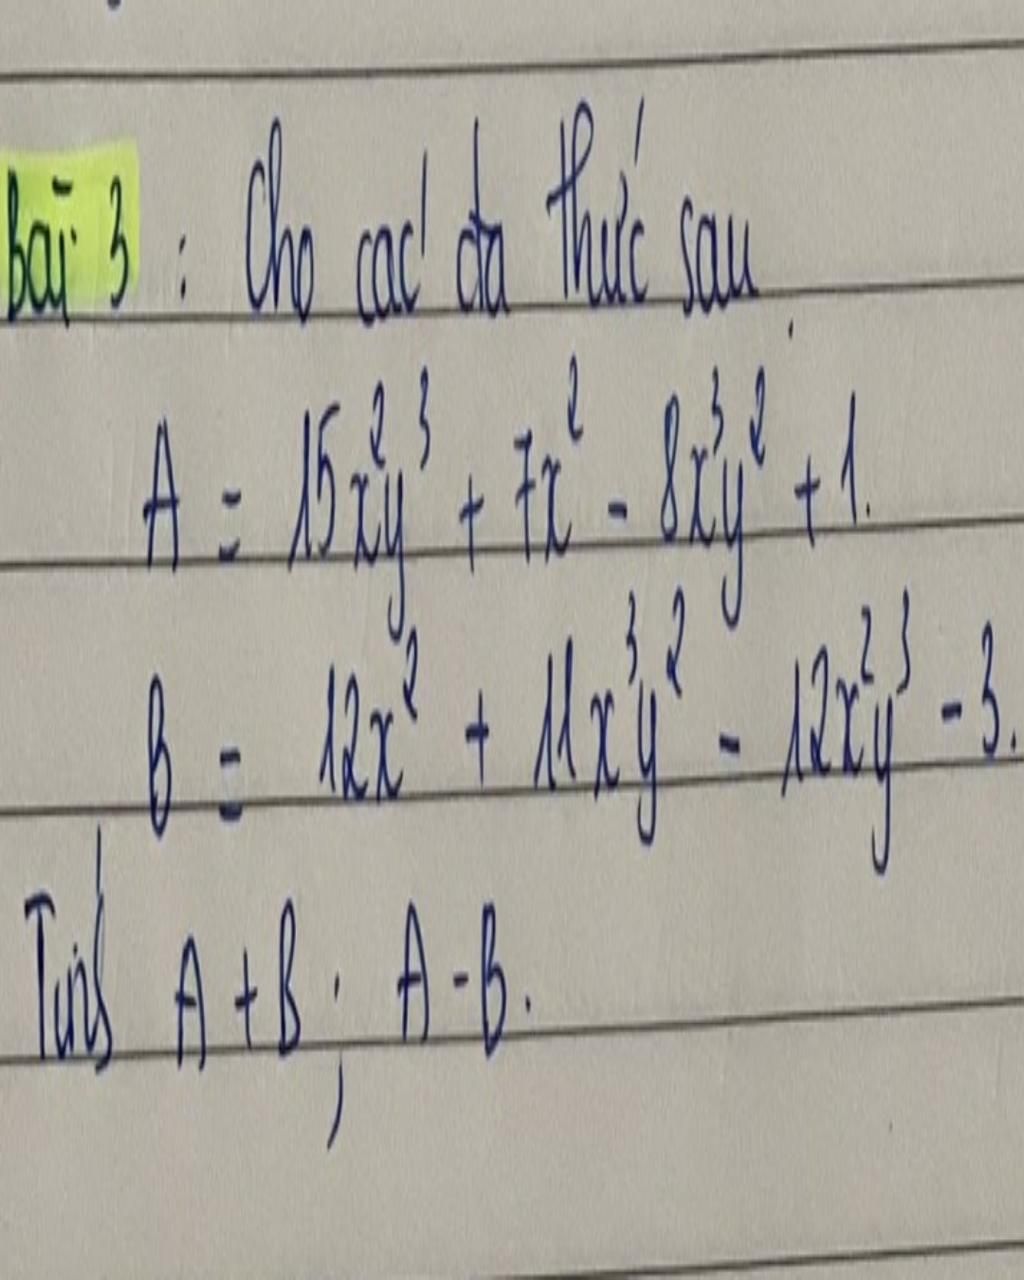 Bài 3 : Cho các đa thức sau.
A = 15x²y³ + 7x² - 8x³y² + 1.
B = 12x² + 11x³y² - 12x²y³ - 3.
Tính A + B ; A - B.